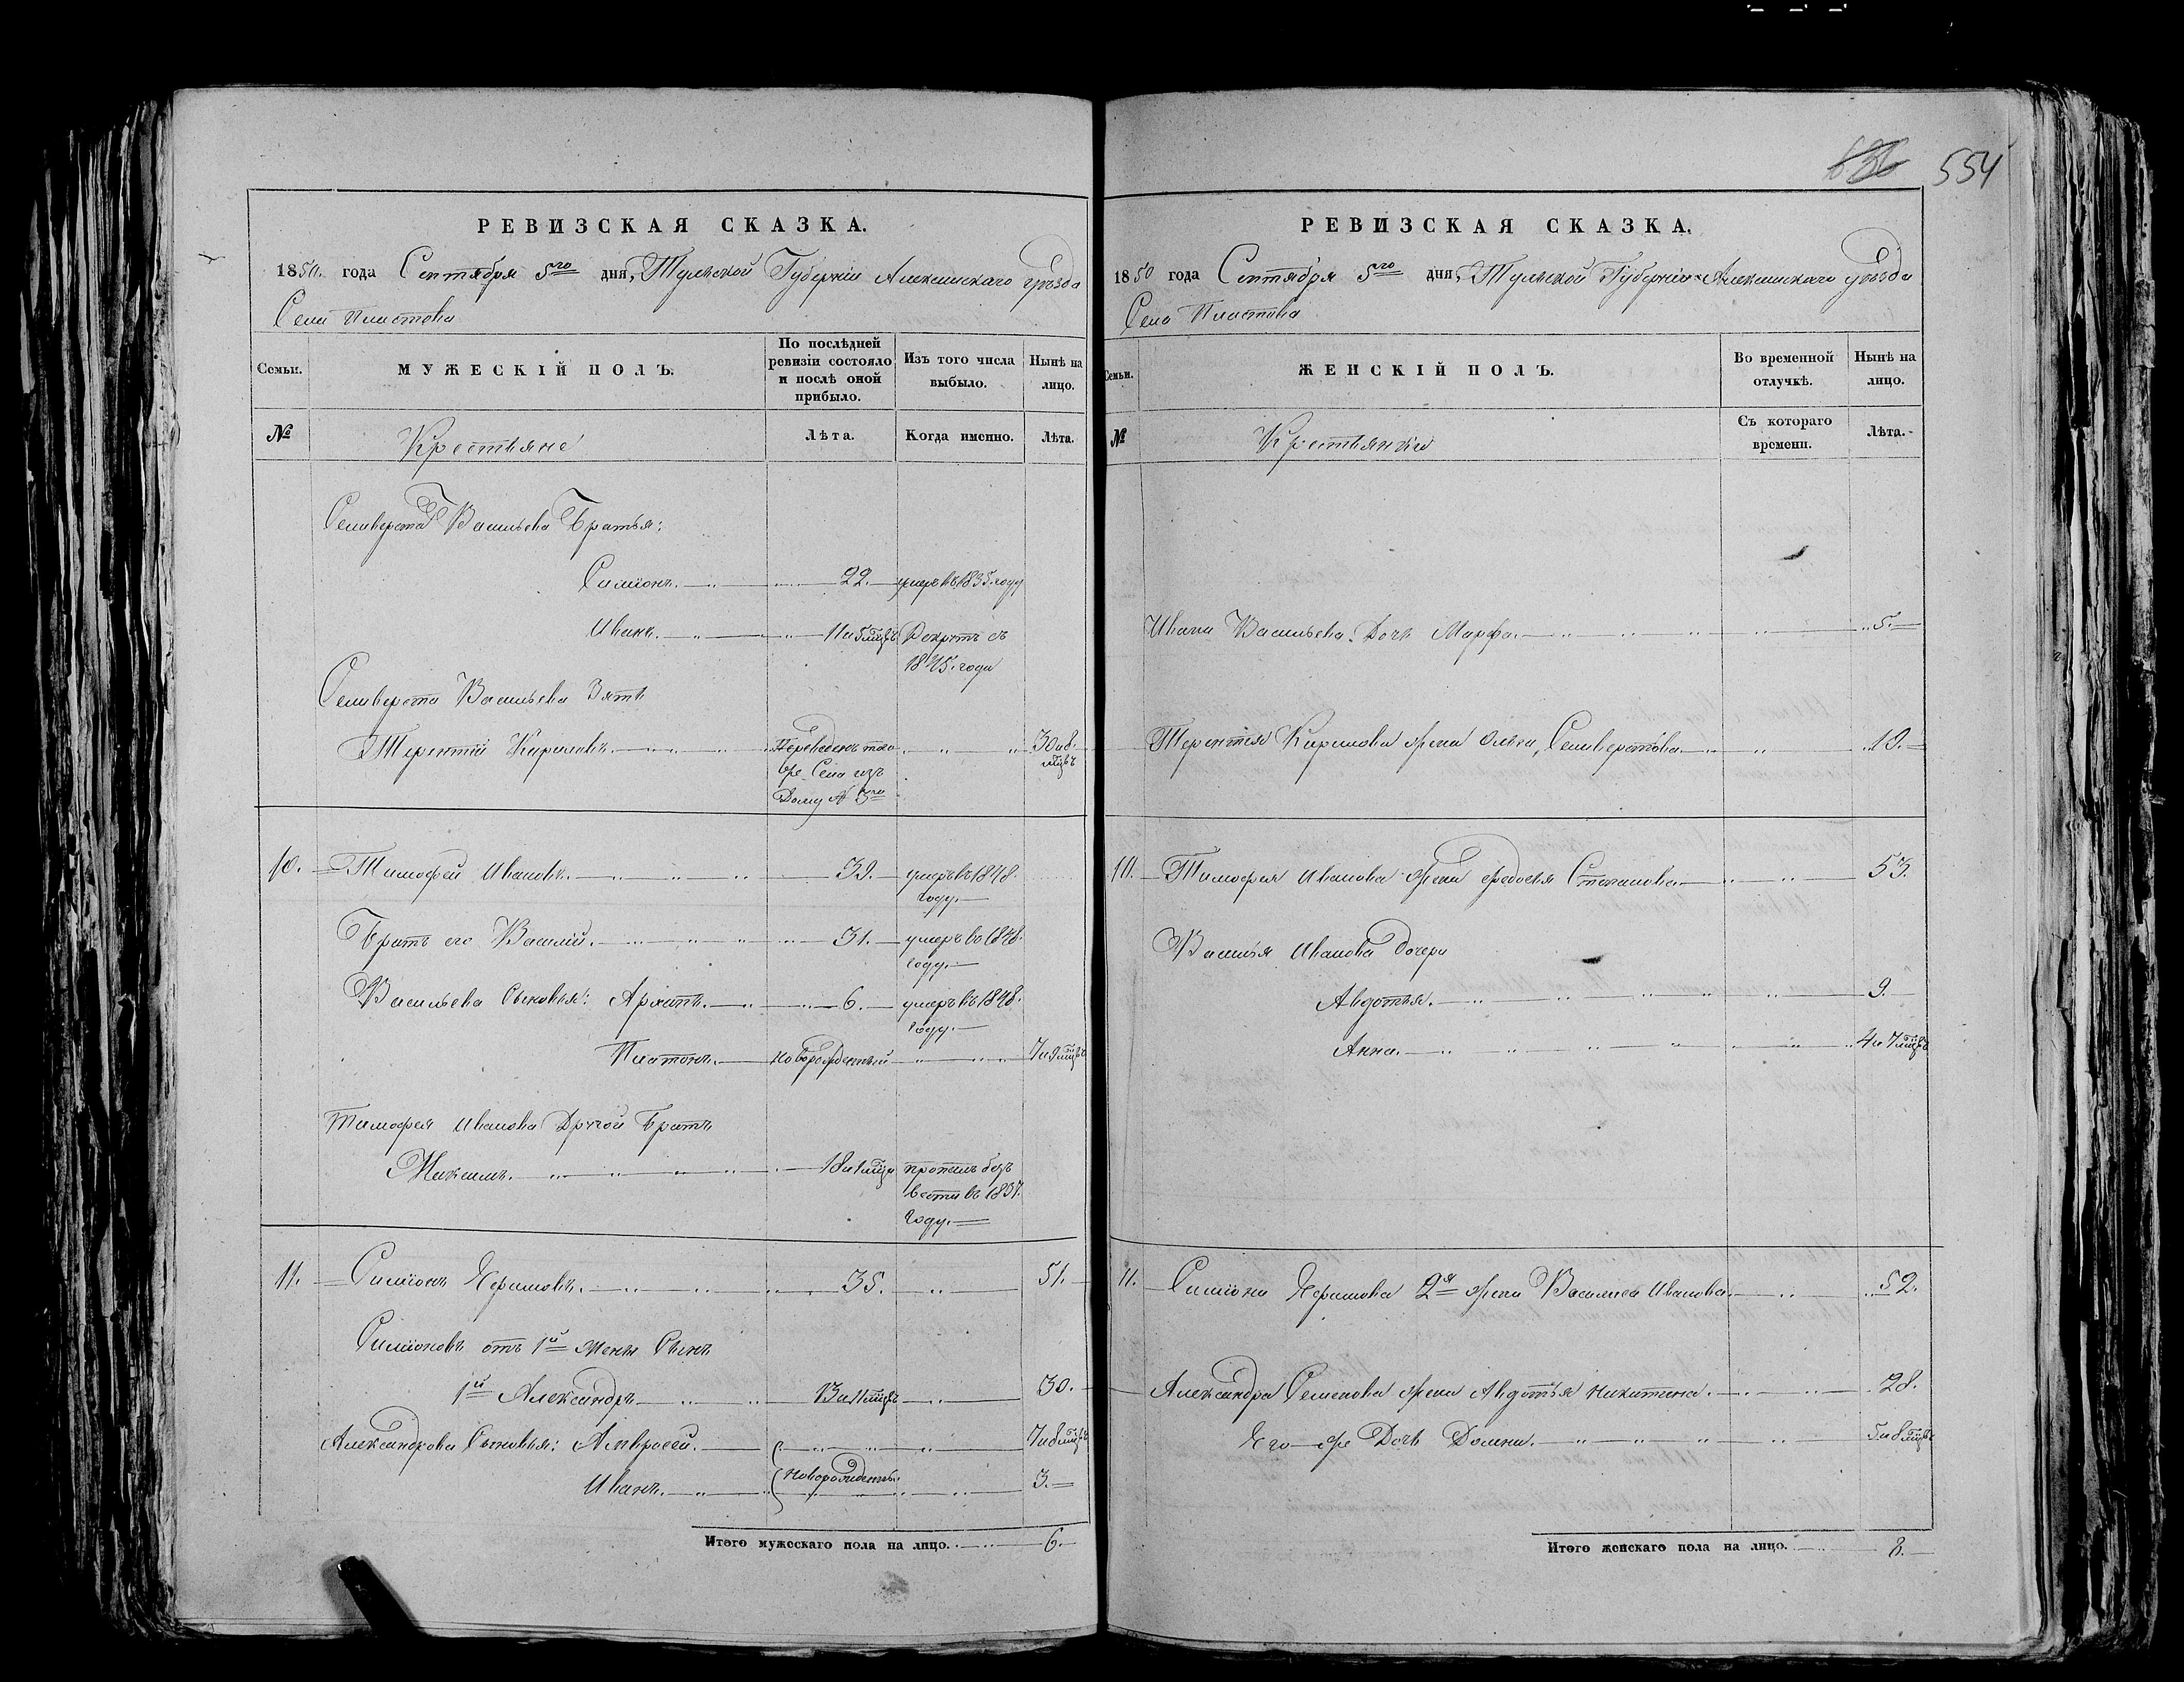 636 554
РЕВИЗСКАЯ СКАЗКА.
1850. года Сентября 5го дня, Тульской Губерніи Алексинскаго уѣзда
Села Пластова
Семьи. МУЖЕСКІЙ ПОЛЪ. По послѣдней ревизіи состояло и послѣ оной прибыло. Изъ того числа выбыло. Нынѣ на лицо.
№ Крестьяне Лѣта. Когда именно. Лѣта.
Селиверста Васильева Братья:
Симіонъ. 22. умеръ въ 1835. году
Иванъ. 11 и 5 мцвъ Рекрутъ съ
1845. года
Селиверста Васильева Зять
Терентій Кириловъ. Переведенъ того 30 и 8.
же Села изъ мцвъ
Дому № 3го
10. Тимофей Ивановъ. 39. умеръ въ 1848.
году.
Братъ его Василій. 31. умеръ въ 1848.
году.
Васильева Сыновья: Архипъ. 6. умеръ въ 1848.
году.
Платонъ. новорожденный 7 и 9 мцвъ
Тимофея Иванова Другой Братъ
Максимъ. 18 и 1 мца пропалъ безъ
вести въ 1837.
году.
11. Симіонъ Ефимовъ. 35. 51.
Симіоновъ отъ 1й Жены Сынъ
1й Александръ 13 и 11 мцвъ 30.
Александрова Сыновья: Амвросій. 7 и 8 мцвъ
новорожденны.
Иванъ. 3.
Итого мужескаго пола на лицо. 6.
РЕВИЗСКАЯ СКАЗКА.
1850 года Сентября 5го дня, Тульской Губерніи Алексинскаго уѣзда
Села Пластова
Семьи. ЖЕНСКІЙ ПОЛЪ. Во временной отлучкѣ. Нынѣ на лицо.
№ Крестьянки Съ котораго времени. Лѣта.
Ивана Васильева Дочь Марфа. 5.
Терентья Кирилова жена Ольга Селиверстова. 19.
10. Тимофея Иванова жена Федосья Степанова. 53.
Василья Иванова Дочери
Авдотья. 9.
Анна. 4 и 7 мцвъ
11. Симіона Ефимова 2я жена Василиса Иванова. 52.
Александра Семенова жена Авдотья Никитина. 28.
Его же Дочь Домна. 5 и 8 мцвъ
Итого женскаго пола на лицо. 8.